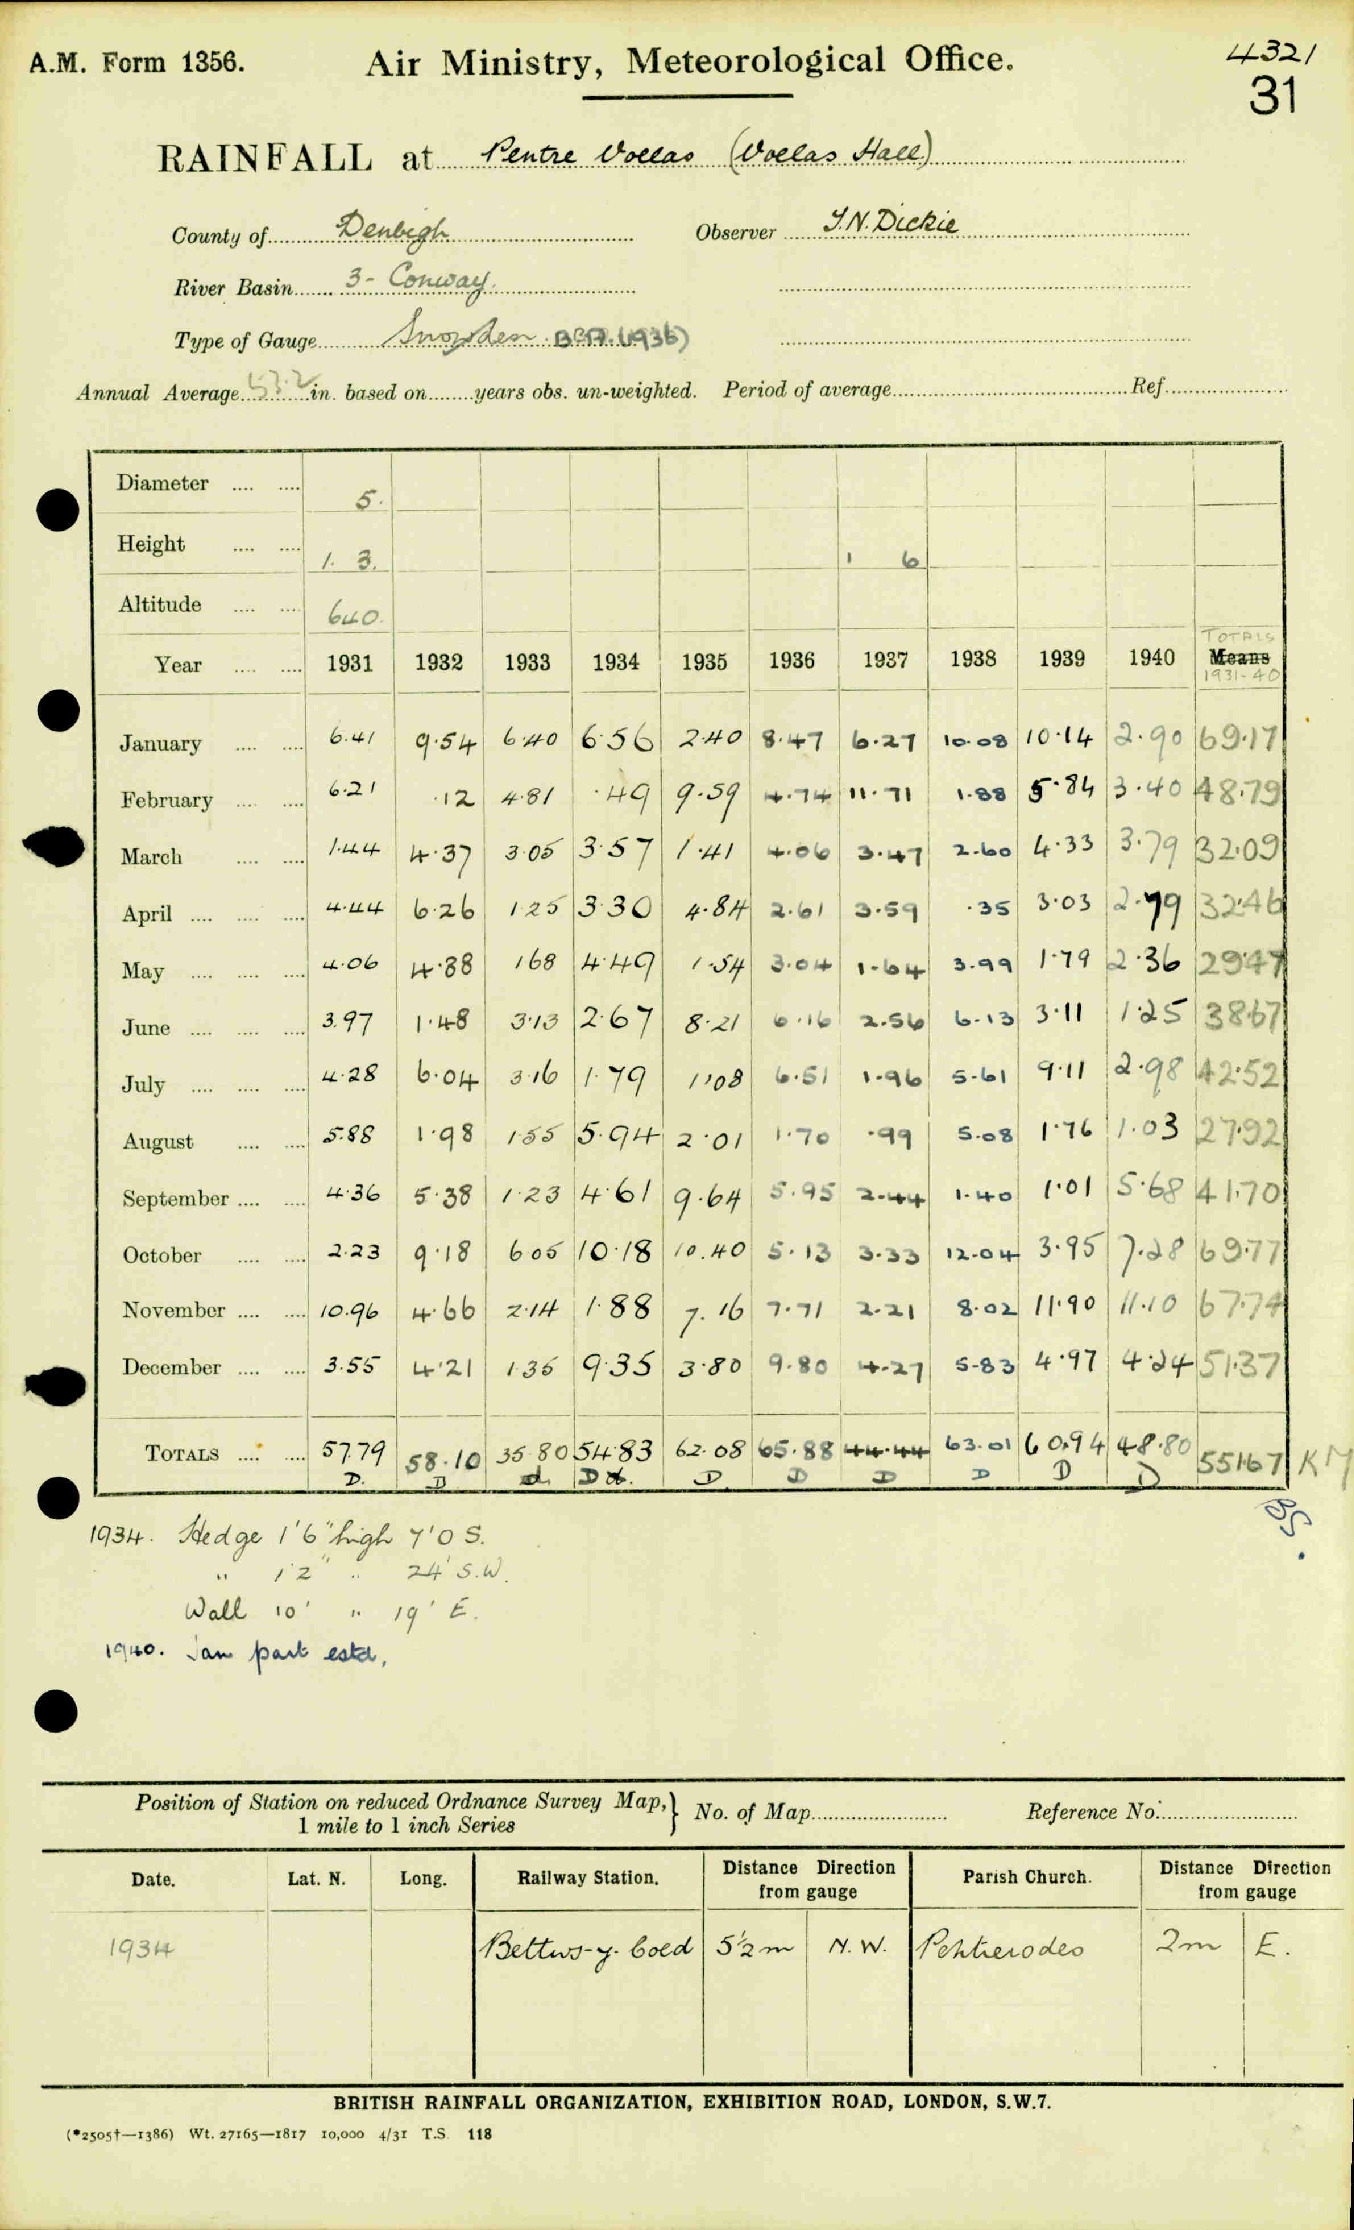 A.M. Form 1356. Air Ministry, Meteorological Office. 4321
31
RAINFALL at Pentre Voelas (Voelas Hall)
County of Denbigh Observer T.N. Dickie
River Basin 3 - Conway.
Type of Gauge Snowden (1936)
Annual Average 53.2 in. based on years obs. un-weighted. Period of average Ref.
Diameter 5.
Height 1. 3. 1 6
Altitude 640.
TOTALS
Year 1931 1932 1933 1934 1935 1936 1937 1938 1939 1940 Means
1931-40
January 6.41 9.54 6.40 6.56 2.40 8.47 6.27 10.08 10.14 2.90 69.17
February 6.21 .12 4.81 .49 9.59 4.74 11.71 1.88 5.84 3.40 48.79
March 1.44 4.37 3.05 3.57 1.41 4.06 3.47 2.60 4.33 3.79 32.09
April 4.44 6.26 1.25 3.30 4.84 2.61 3.59 .35 3.03 2.79 32.46
May 4.06 4.88 1.68 4.49 1.54 3.04 1.64 3.99 1.79 2.36 29.47
June 3.97 1.48 3.13 2.67 8.21 6.16 2.56 6.13 3.11 1.25 38.67
July 4.28 6.04 3.16 1.79 1.08 6.51 1.96 5.61 9.11 2.98 42.52
August 5.88 1.98 1.55 5.94 2.01 1.70 .99 5.08 1.76 1.03 27.92
September 4.36 5.38 1.23 4.61 9.64 5.95 2.44 1.40 1.01 5.68 41.70
October 2.23 9.18 6.05 10.18 10.40 5.13 3.33 12.04 3.95 7.28 69.77
November 10.96 4.66 2.14 1.88 7.16 7.71 2.21 8.02 11.90 11.10 67.74
December 3.55 4.21 1.35 9.35 3.80 9.80 4.27 5.83 4.97 4.24 51.37
TOTALS 57.79 58.10 35.80 54.83 62.08 65.88 44.44 63.01 60.94 48.80 551.67 KM
D. D d. D D D D D D D
BS.
1934. Hedge 1'6" high 7'0 S.
" 12" " 24' S.W.
Wall 10' " 19' E.
1940. Jan part estd.
Position of Station on reduced Ordnance Survey Map, } No. of Map Reference No.
1 mile to 1 inch Series
Date. Lat. N. Long. Railway Station. Distance Direction from gauge Parish Church. Distance Direction from gauge
1934 Bettws-y-Coed 5½m N.W. 2m E.
BRITISH RAINFALL ORGANIZATION, EXHIBITION ROAD, LONDON, S.W.7.
(*2505†—1386) Wt. 27165—1817 10,000 4/31 T.S. 118